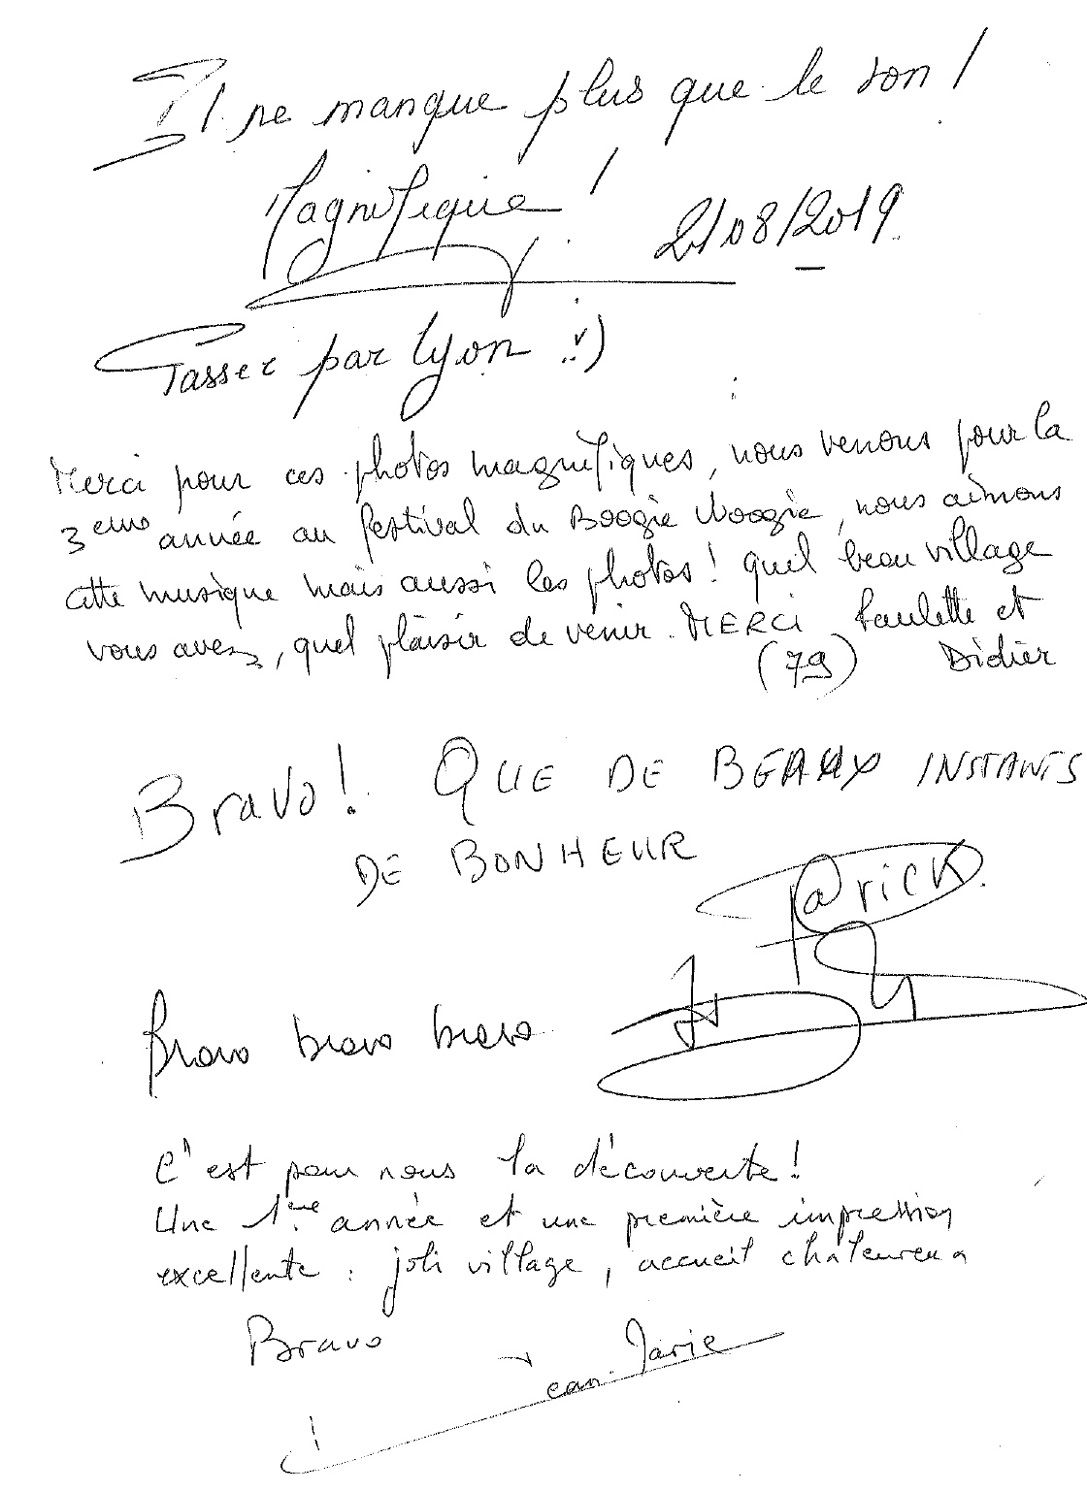 Il ne manque plus que le son !
Magnifique !
21/08/2019
Passez par Lyon :)
Merci pour ces photos magnifiques, nous venons pour la
3ème année au festival du Boogie Woogie, nous aimons
cette musique mais aussi les photos ! quel beau village
vous avez, quel plaisir de venir. MERCi Paulette et
(79) Didier
Bravo ! QUE DE BEAUX INSTANTS
DE BONHEUR
Patrick
Bravo bravo bravo
C'est pour nous la découverte !
Une 1ère année et une première impression
excellente : joli village, accueil chaleureux
Bravo
Jean-Marie
!